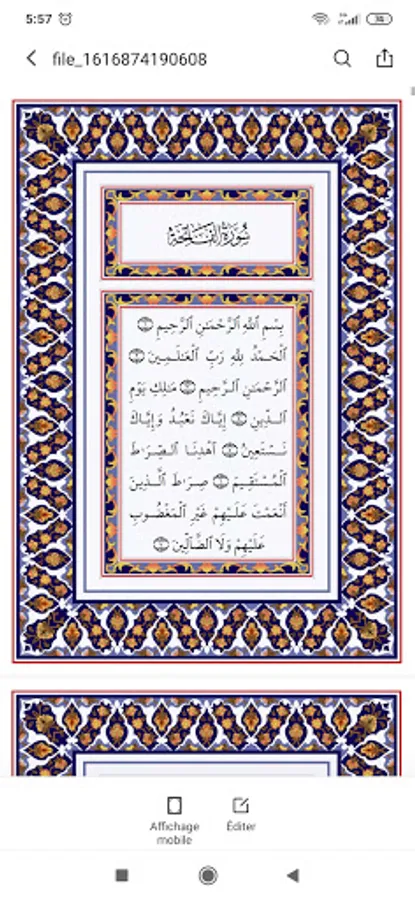 5:57
file_1616874190608
سُورَةُ الفَاتِحَةِ
بِسْمِ ٱللَّهِ ٱلرَّحْمَٰنِ ٱلرَّحِيمِ ۝
ٱلْحَمْدُ لِلَّهِ رَبِّ ٱلْعَٰلَمِينَ ۝
ٱلرَّحْمَٰنِ ٱلرَّحِيمِ ۝ مَٰلِكِ يَوْمِ
ٱلدِّينِ ۝ إِيَّاكَ نَعْبُدُ وَإِيَّاكَ
نَسْتَعِينُ ۝ ٱهْدِنَا ٱلصِّرَٰطَ
ٱلْمُسْتَقِيمَ ۝ صِرَٰطَ ٱلَّذِينَ
أَنْعَمْتَ عَلَيْهِمْ غَيْرِ ٱلْمَغْضُوبِ
عَلَيْهِمْ وَلَا ٱلضَّآلِّينَ ۝
Affichage
mobile
Éditer